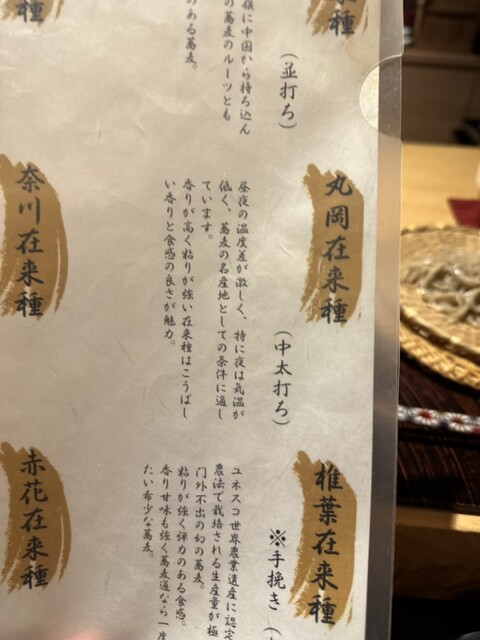 種
(並打ち)
嶺に中国から持ち込ん
の蕎麦のルーツとも
のある蕎麦。
種
丸岡在来種
(中太打ち)
昼夜の温度差が激しく、特に夜は気温が
低く、蕎麦の名産地としての条件に適し
ています。
香りが高く粘りが強い在来種はこうばし
い香りと食感の良さが魅力。
奈川在来種
椎葉在来種
※手挽き
ユネスコ世界農業遺産に認定
農法で栽培される生産量が極
門外不出の幻の蕎麦。
粘りが強く弾力のある食感。
香り甘味も強く蕎麦通なら一度
たい希少な蕎麦。
赤花在来種